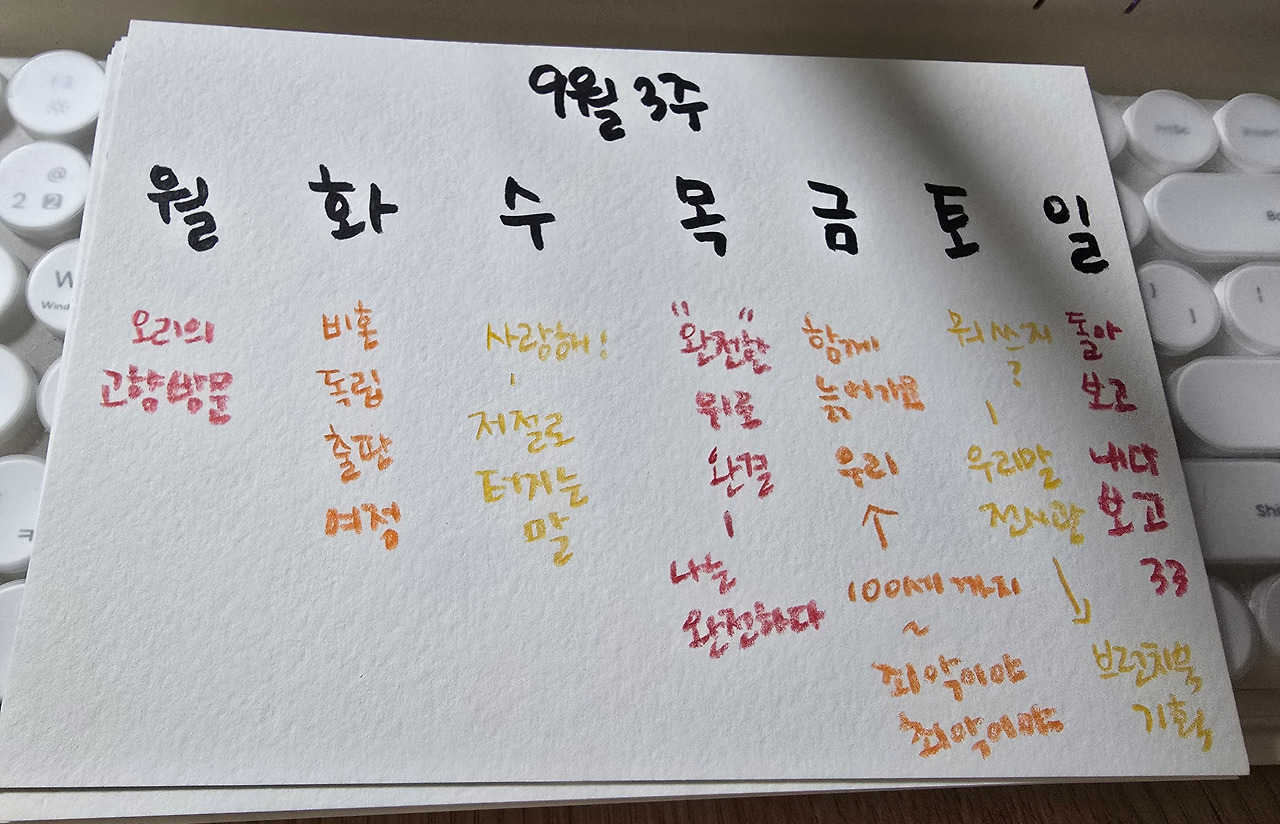 9월 3주
월 화 수 목 금 토 일
오리의
고향방문
비혼
독립
출판
여정
사랑해!
저절로
터지는
말
"완전한"
위로
완결
나는
완전하다
함께
늙어가요
우리
↑
100세까지
~
최악이야
최악이야
뭐쓰지
?
우리말
전시관
브런치북
기획
돌아
보고
내다
보고
33
@
2
W
ㅋ